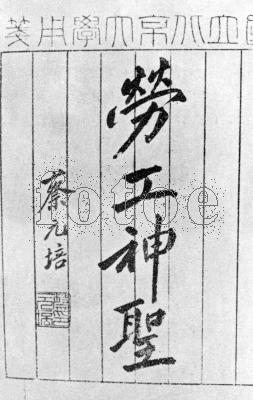 國立北京大學用箋
勞工神聖
蔡元培
fotoe